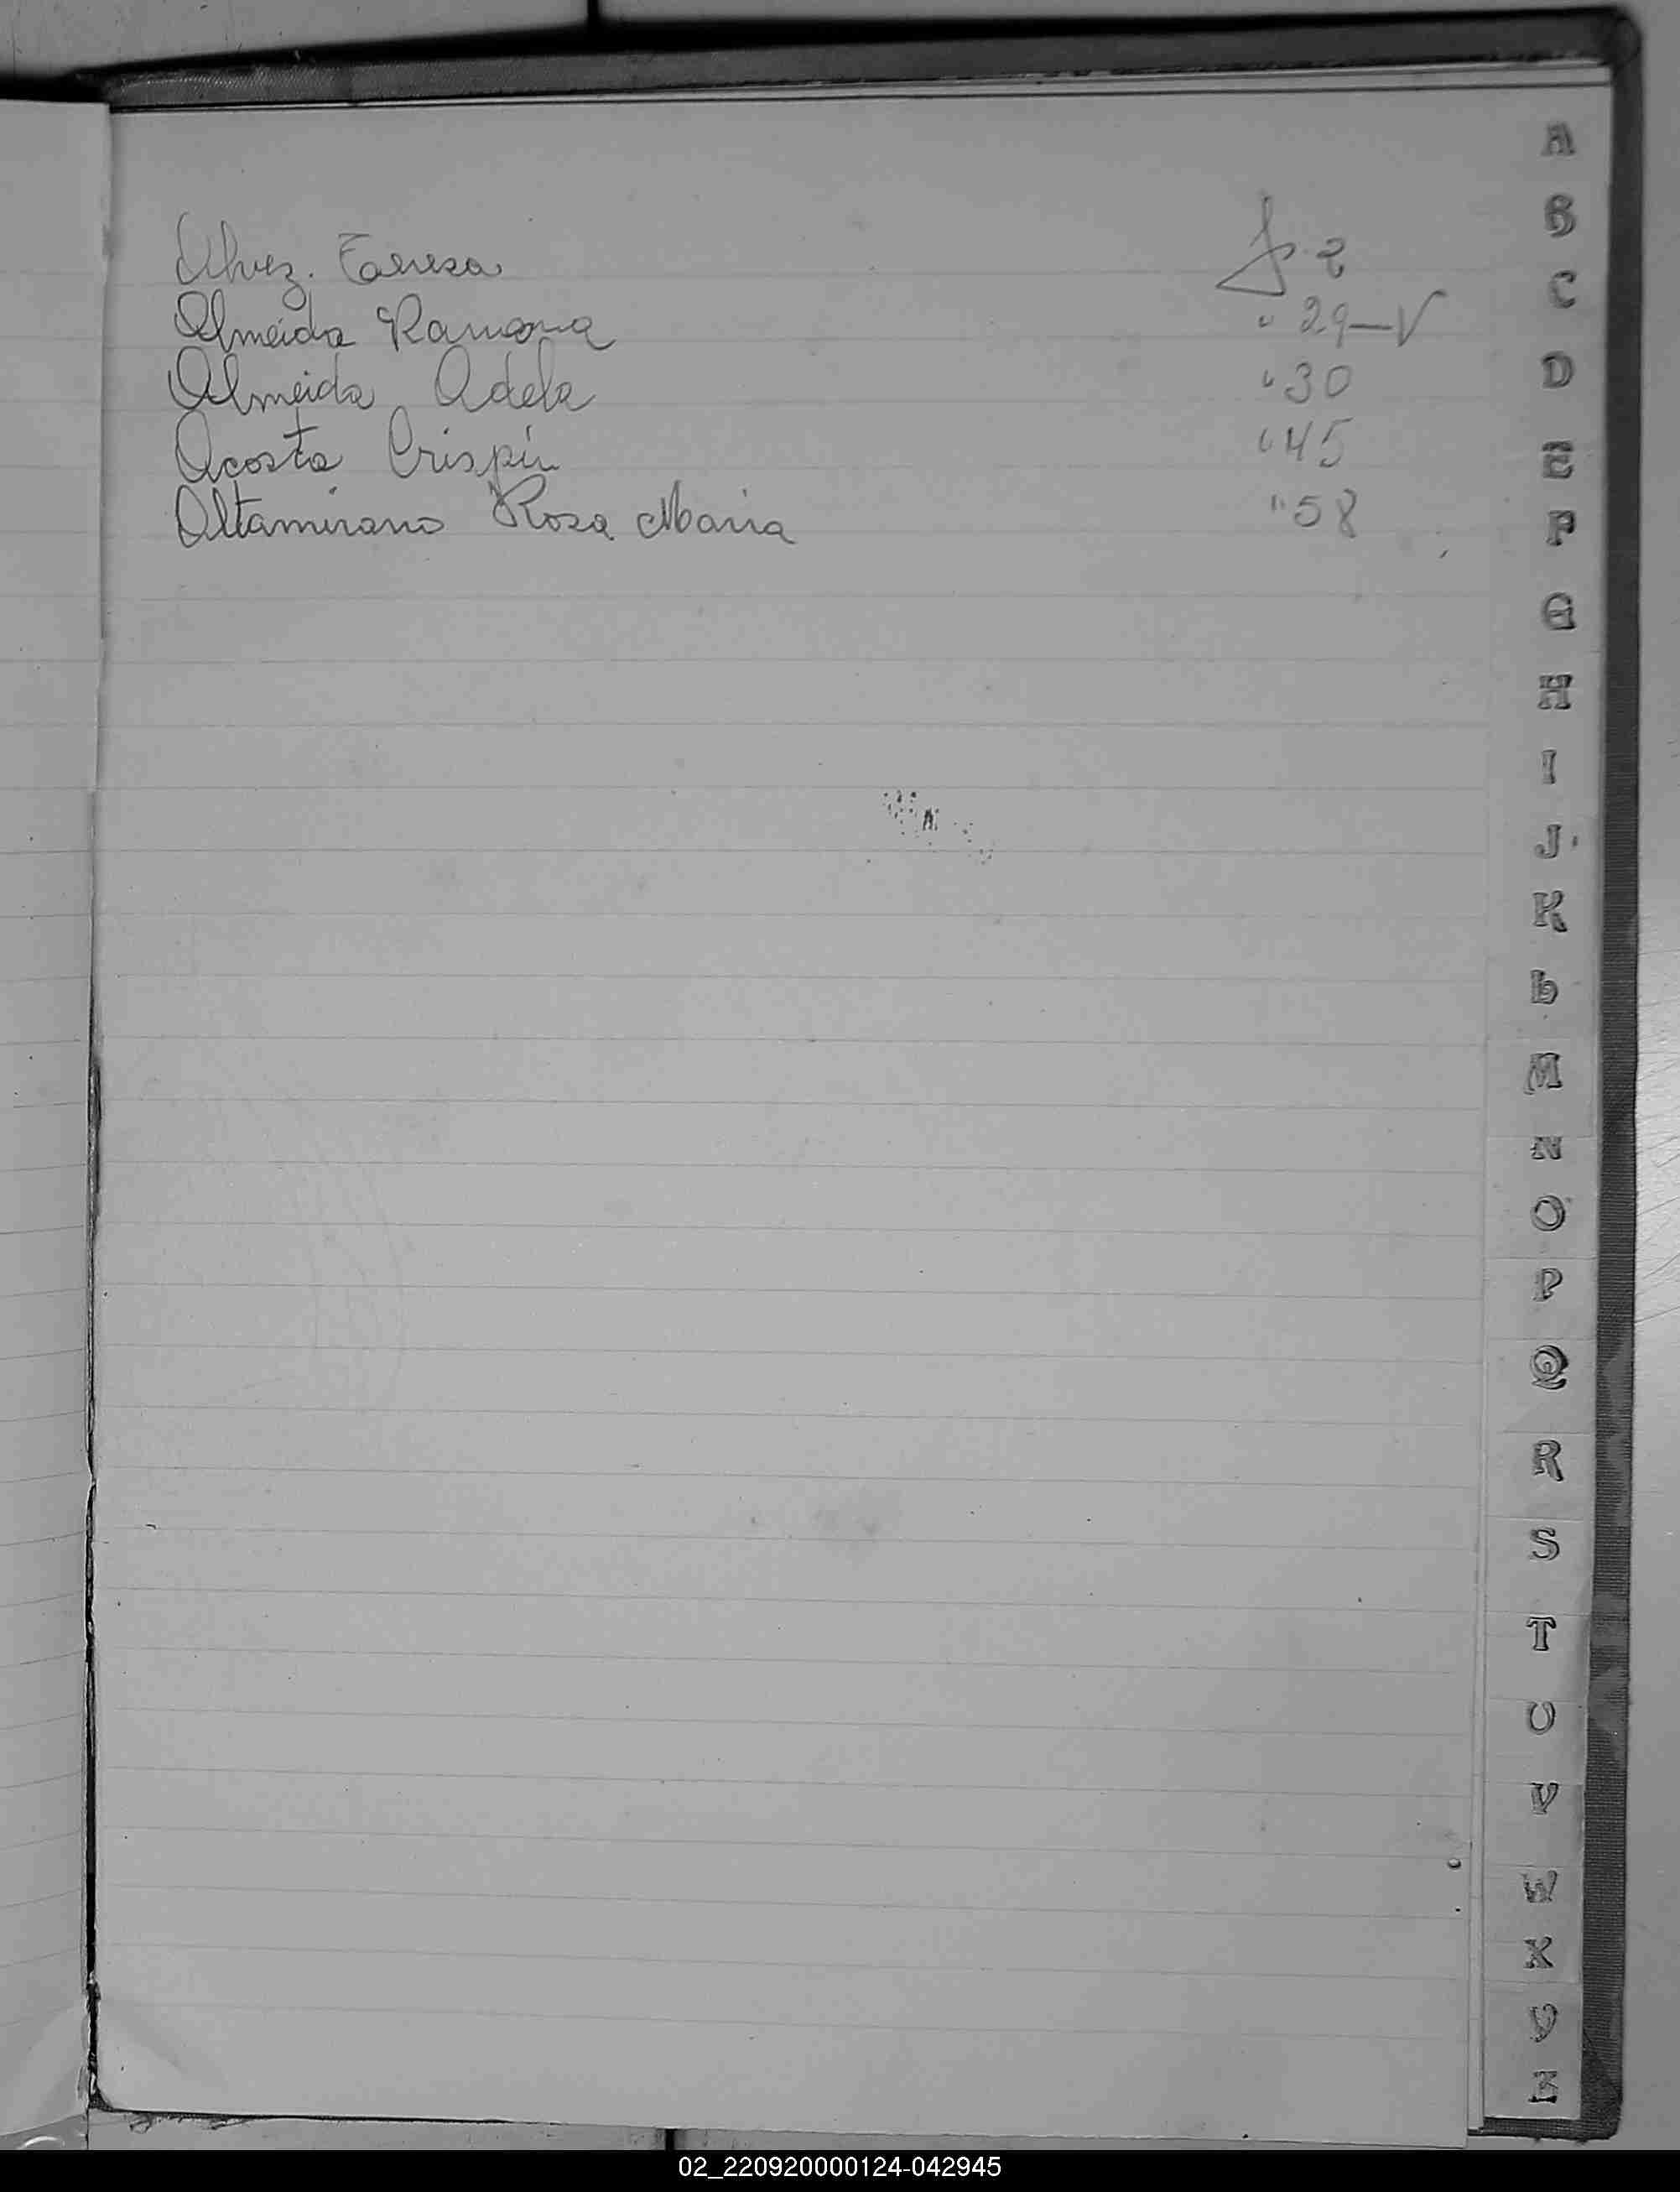 Alvez. Teresa fs. 2
Almeida Ramona " 29—V
Almeida Adela " 30
Acosta Crispin " 45
Altamirano Rosa Maria " 58
A
B
C
D
E
F
G
H
I
J
K
L
M
N
O
P
Q
R
S
T
U
V
W
X
Y
Z
02_220920000124-042945